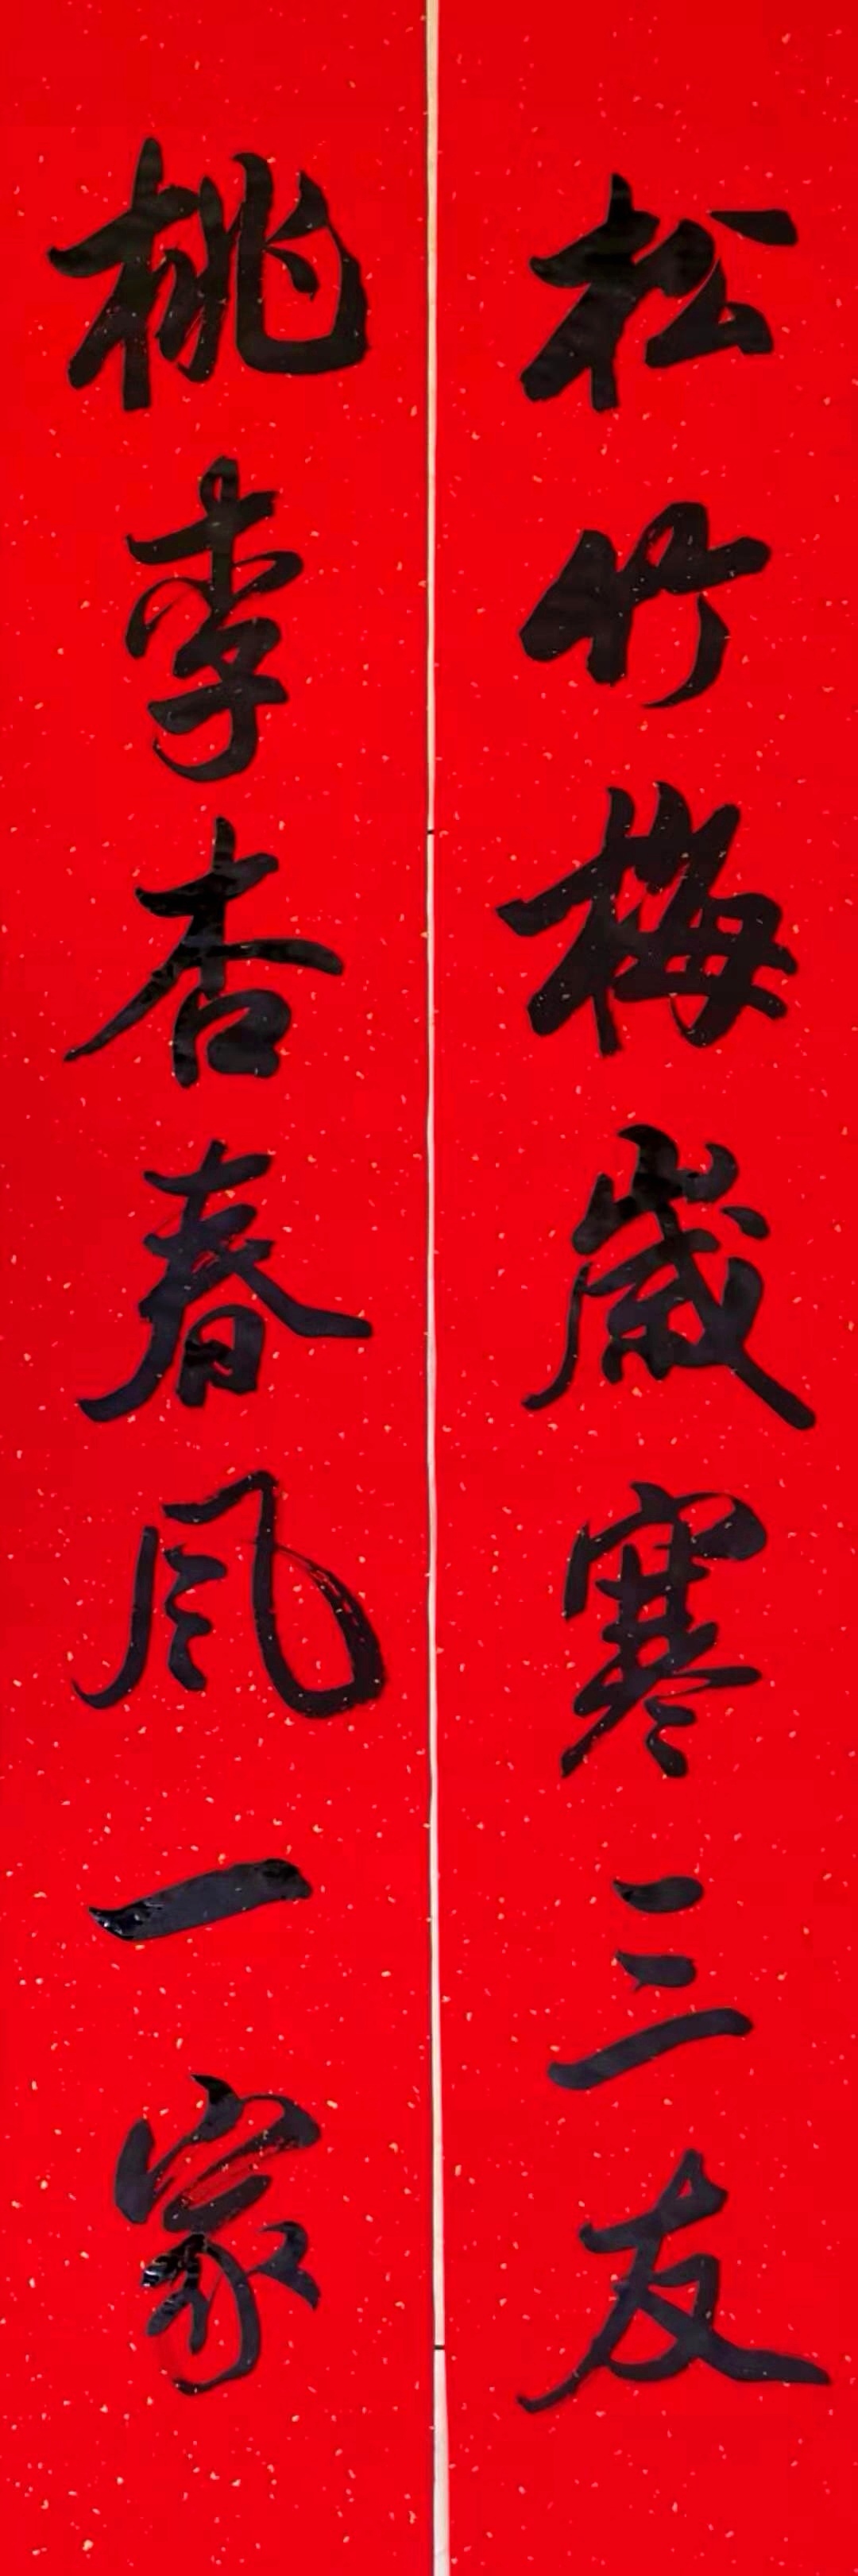 松竹梅歲寒三友
桃李杏春风一家